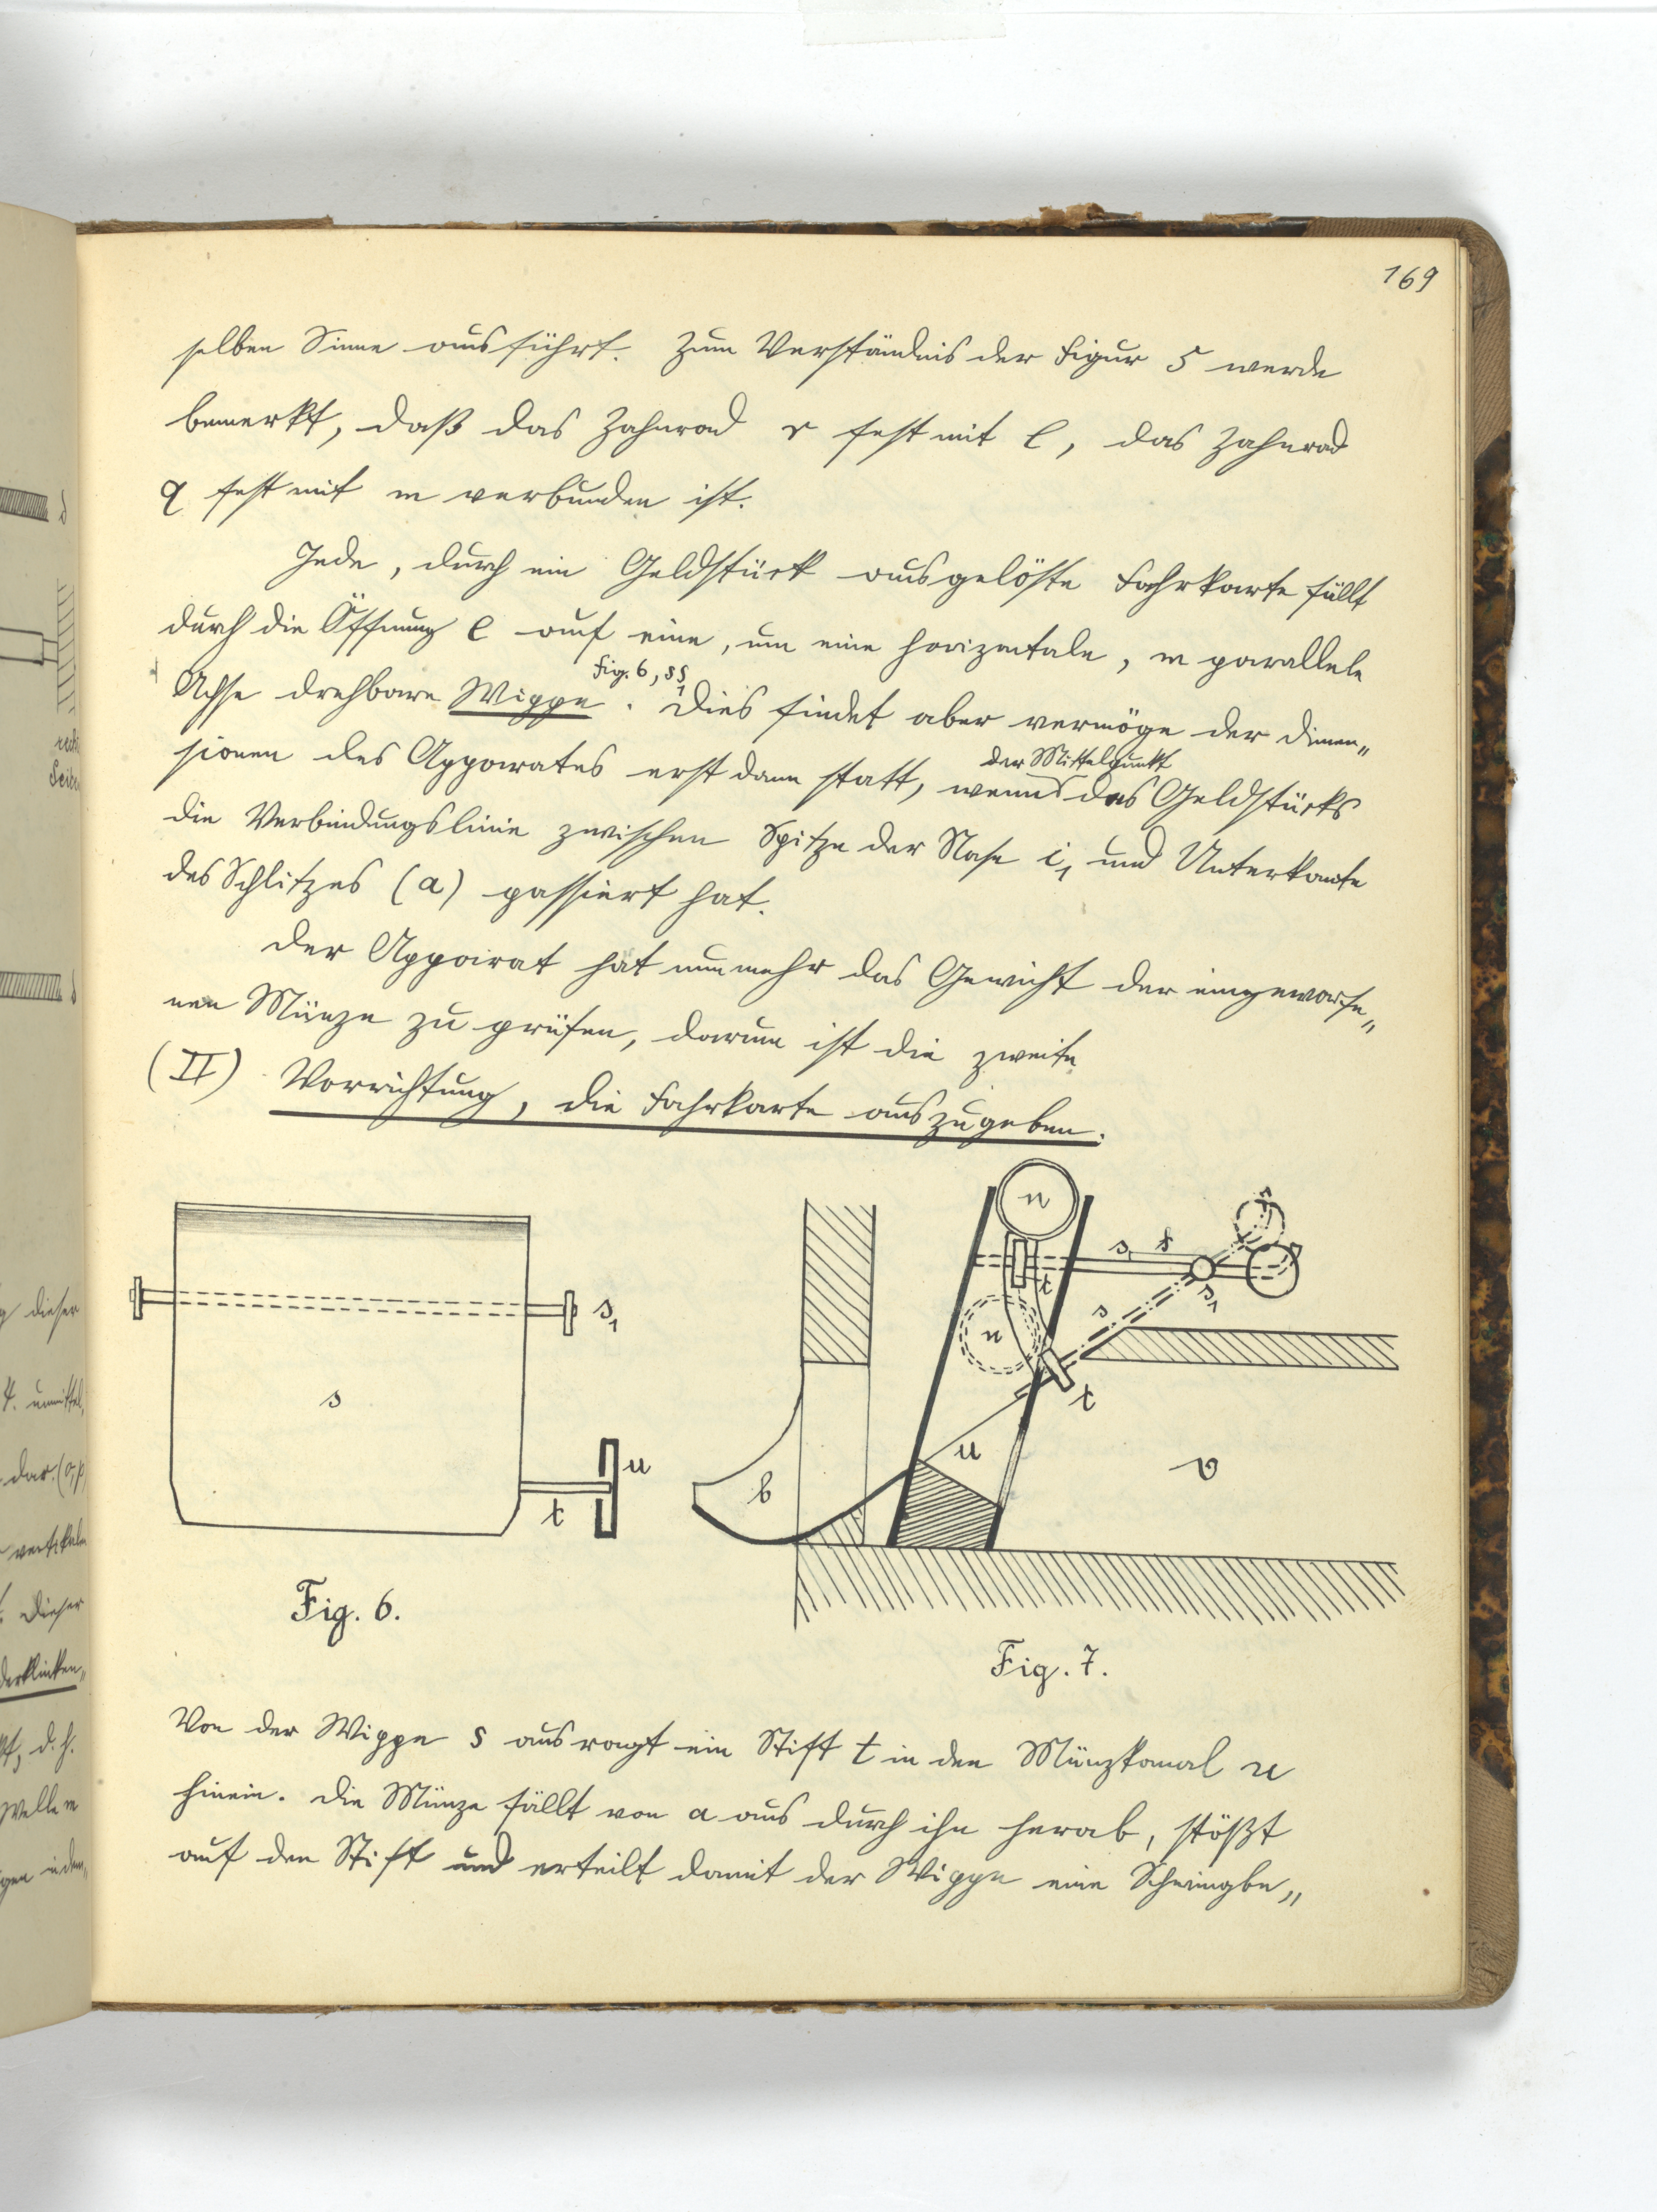 169
selben Sinne ausführt. Zum Verständnis der Figur 5 werde
bemerkt, daß das Zahnrad r fest mit l, das Zahnrad
q fest mit m verbunden ist.
Jede, durch ein Geldstück ausgelöste Fahrkarte fällt
durch die Öffnung e auf eine, um eine horizontale, m parallele
Fig. 6, ss₁
Achse drehbare Wippe. Dies findet aber vermöge der Dimen„
der Mittelpunkt
sionen des Apparates erst dann statt, wenn des Geldstücks
die Verbindungslinie zwischen Spitze der Nase i₁ und Unterkante
des Schlitzes (a) passiert hat.
Der Apparat hat nunmehr das Gewicht der eingeworfe„
nen Münze zu prüfen, darum ist die zweite
(II) Vorrichtung, die Fahrkarte auszugeben.
s₁
s
u
t
Fig. 6.
n
s
t
s₁
n
s
t
u
b
v
Fig. 7.
Von der Wippe s aus ragt ein Stift t in den Münzkanal u
hinein. Die Münze fällt von a aus durch ihn herab, stößt
auf den Stift und erteilt damit der Wippe eine Schwingbe„
rech
Seite
dieser
4. unmittel„
dar. (o, p)
vertikalen
Dieser
derklinken„
d. h.
Welle m
indem„